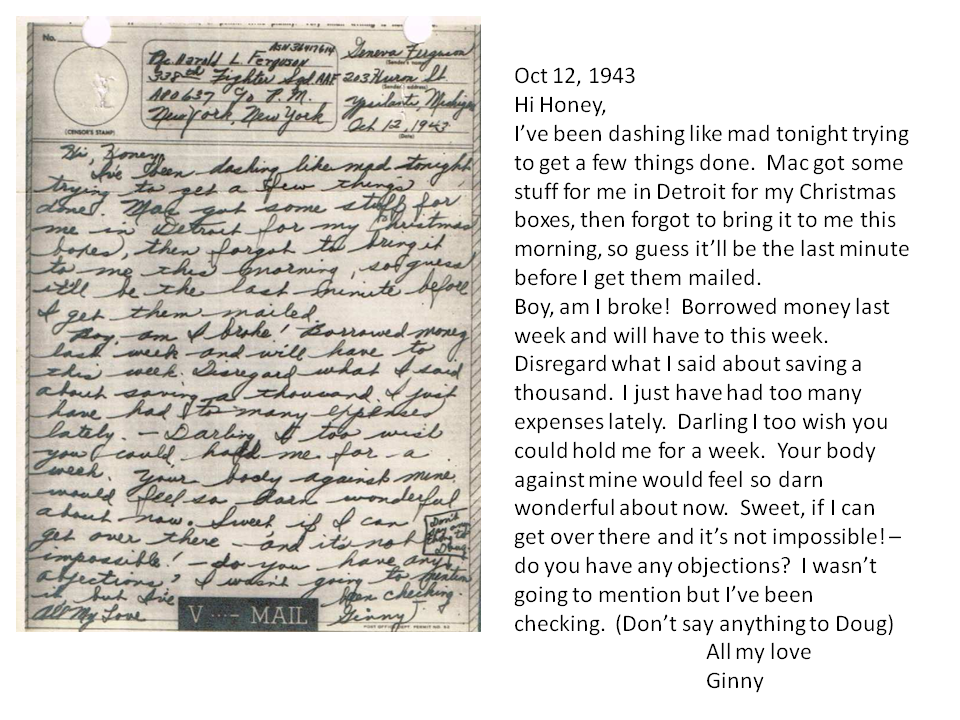 No.
(CENSOR'S STAMP)
ASN 36417614
Pvt. Harold L. Ferguson
338th Fighter Sqd AAF
APO 637 c/o P.M.
New York, New York
Geneva Ferguson
(Sender's name)
203 Huron St
(Sender's address)
Ypsilanti, Michigan
Oct 12, 1943
(Date)
Hi, Honey,
I've been dashing like mad tonight
trying to get a few things
done. Mac got some stuff for
me in Detroit for my Christmas
boxes, then forgot to bring it
to me this morning, so guess
it'll be the last minute before
I get them mailed.
Boy, am I broke! Borrowed money
last week and will have to
this week. Disregard what I said
about saving a thousand. I just
have had to many expenses
lately. – Darling I too wish
you could hold me for a
week. Your body against mine
would feel so darn wonderful
about now. Sweet if I can
get over there and it's not
impossible! – do you have any
objections? I wasn't going to mention
it but I've been checking.
Don't
say any
thing to
Doug
All My Love
Ginny
V ···– MAIL
POST OFFICE DEPT. PERMIT NO.
Oct 12, 1943
Hi Honey,
I've been dashing like mad tonight trying
to get a few things done.  Mac got some
stuff for me in Detroit for my Christmas
boxes, then forgot to bring it to me this
morning, so guess it'll be the last minute
before I get them mailed.
Boy, am I broke!  Borrowed money last
week and will have to this week.
Disregard what I said about saving a
thousand.  I just have had too many
expenses lately.  Darling I too wish you
could hold me for a week.  Your body
against mine would feel so darn
wonderful about now.  Sweet, if I can
get over there and it's not impossible! –
do you have any objections?  I wasn't
going to mention but I've been
checking.  (Don't say anything to Doug)
All my love
Ginny